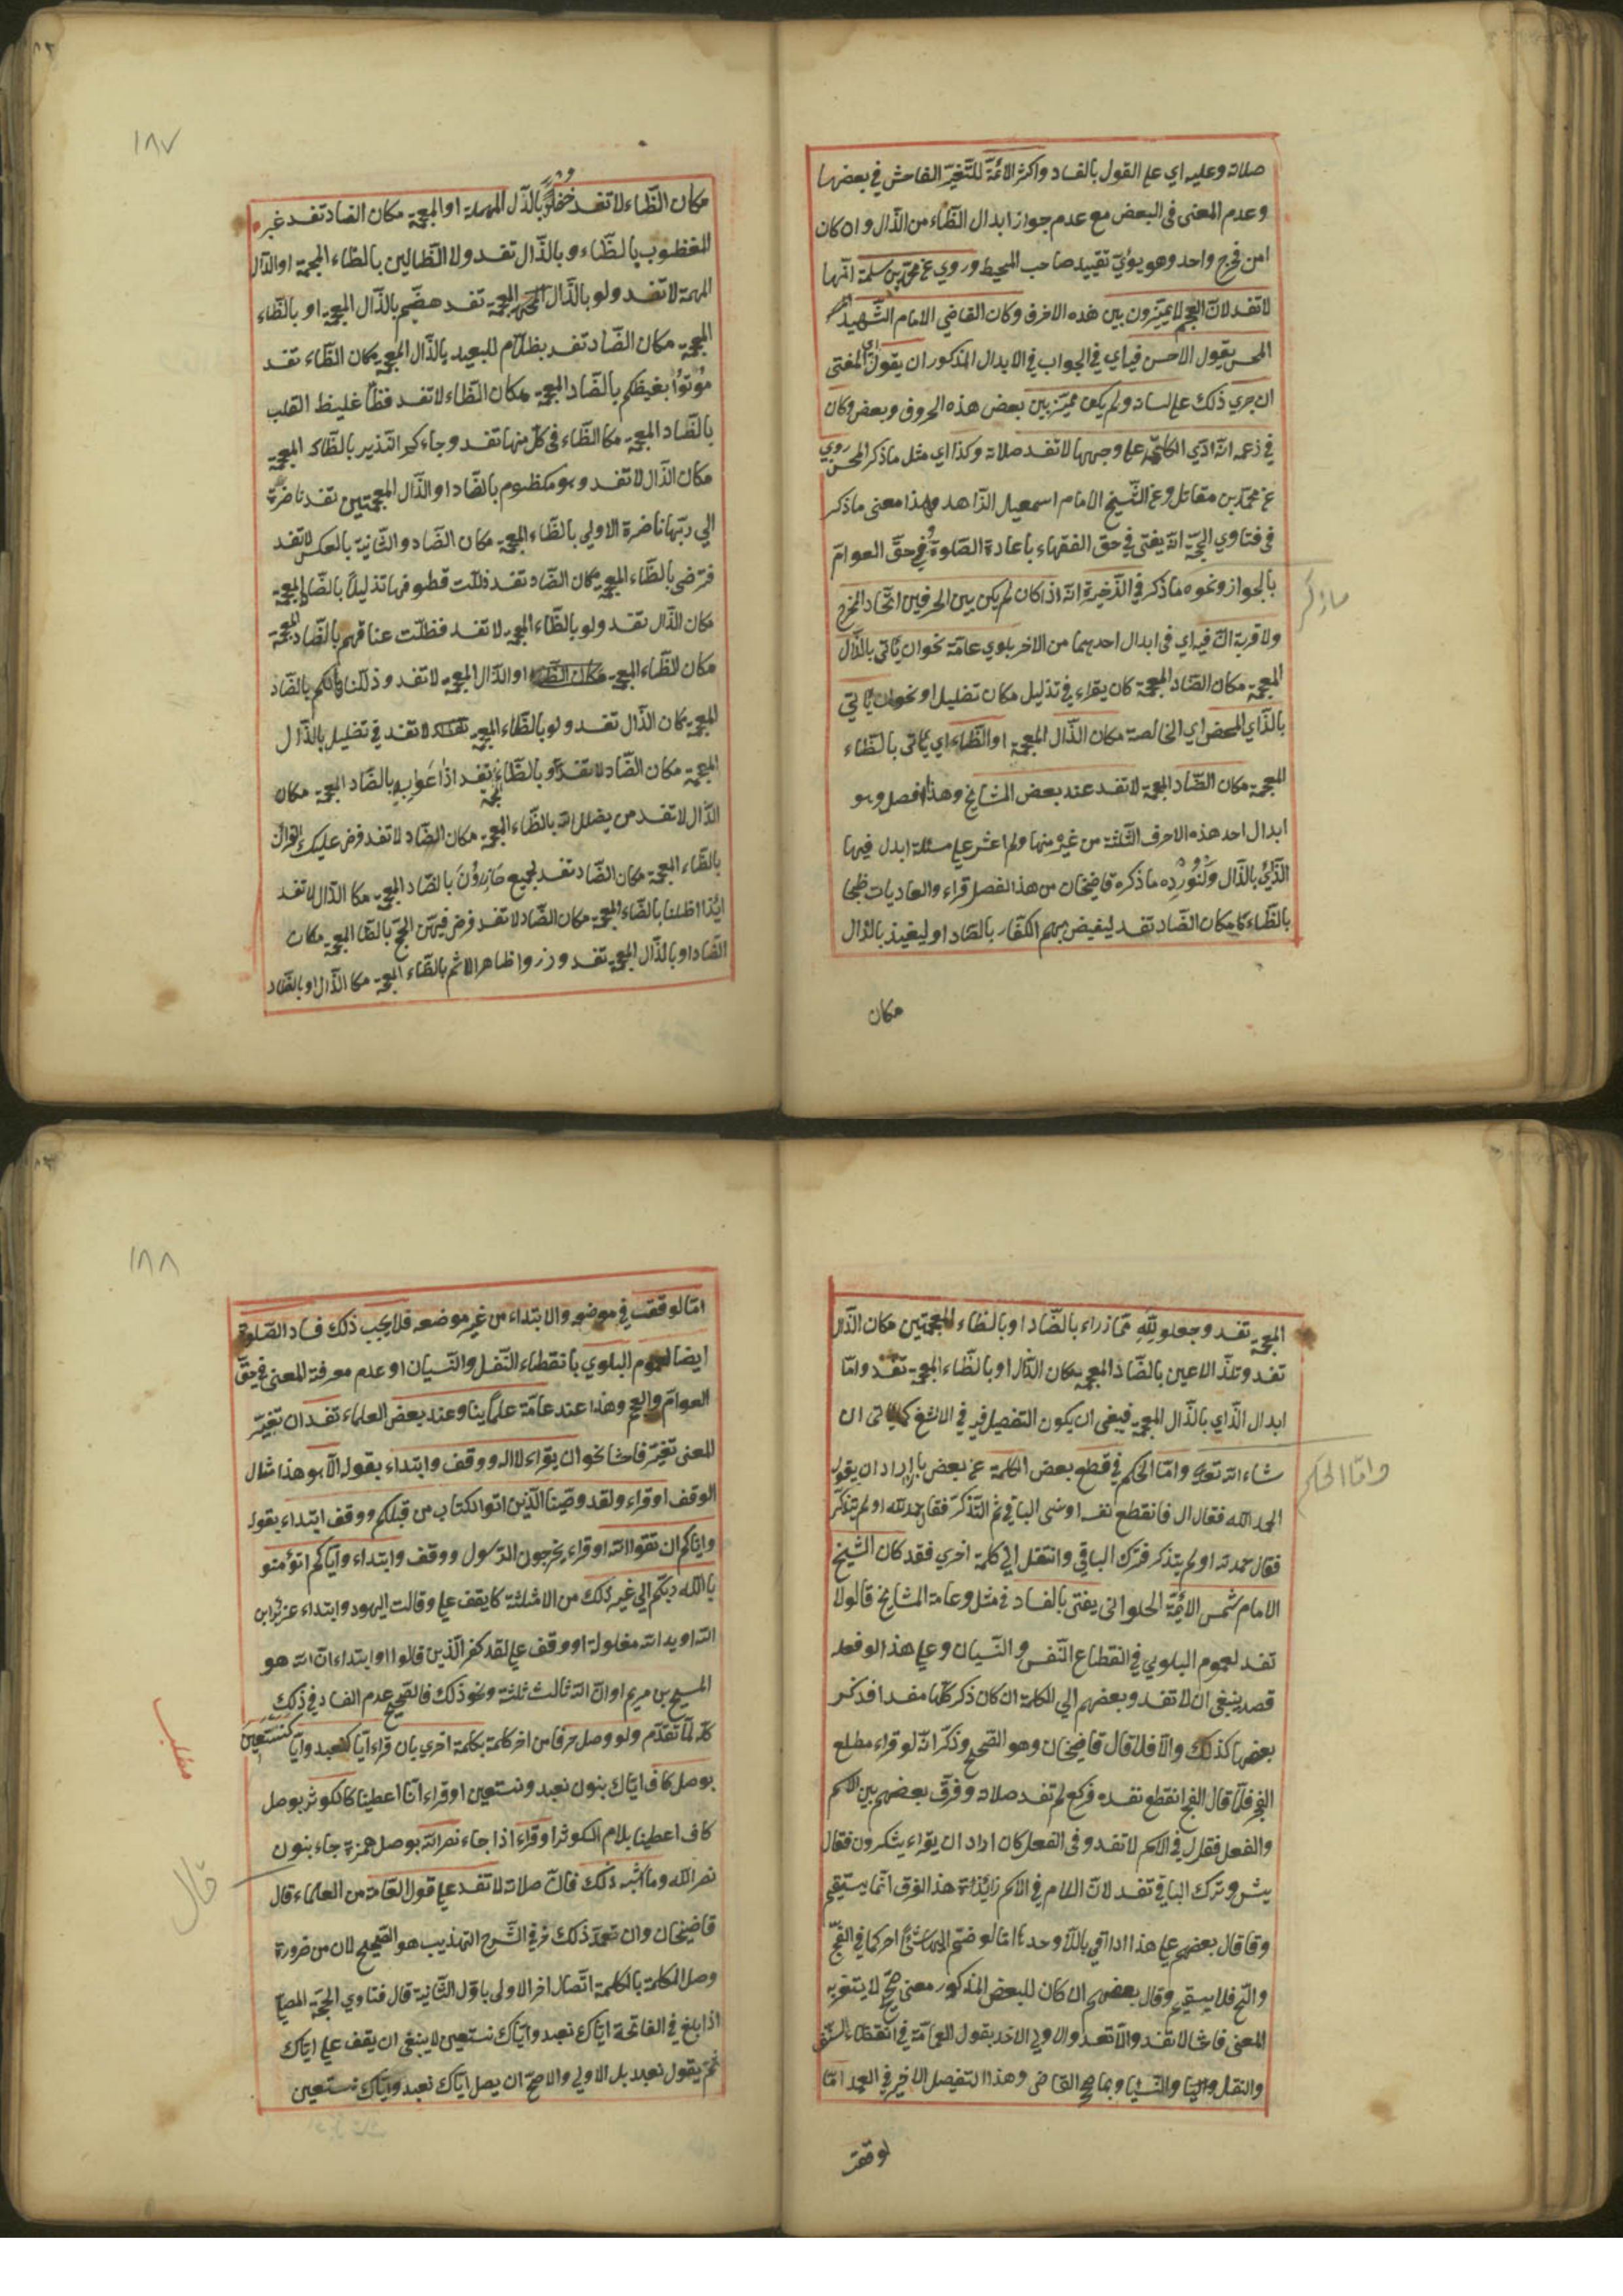 صلاته وعليه اي على القول بالفساد واكثر الائمّة للتّغيّر الفاحش في بعضها
وعدم المعنى فى البعض مع عدم جواز ابدال الظّاء من الذّال وان كان
من مخرج واحد وهو يؤيّد تقييد صاحب المحيط وروي عن محمّد بن سلمة انّها
لا تفسد لانّ العجم لا يميّزون بين هذه الاحرف وكان القاضي الامام الشّهيد
المحسن يقول الاحسن فيه اي في الجواب في الابدال المذكور ان يقول اي المفتى
ان جرى ذلك على لسانه ولم يكن مميّز بين بعض هذه الحروف وبعض وكان
في زعمه انّه ادّي الكلمة على وجهها لا تفسد صلاته وكذا اي مثل ما ذكر المحسن روي
عن محمّد بن مقاتل وعن الشّيخ الامام اسمعيل الزّاهد وهذا معنى ما ذكر
فى فتاوي الحجّة انّه يفتى في حقّ الفقهاء باعادة الصّلوة وفي حقّ العوامّ
بالجواز ونحوه ما ذكر في الذّخيرة انّه اذا كان لم يكن بين الحرفين اتّحاد المخرج
ماذكر
ولا قربه الّا انّ فيه اي فى ابدال احدهما من الاخر بلوي عامّة نحو ان يأتى بالذّال
المعجمة مكان الضّاد المعجمة كان يقراء في تذليل مكان تضليل او نحو ان يأتي
بالزّاي المحض اي الخالصة مكان الذّال المعجمة او الظّاء اي يأتى بالظّاء
المعجمة مكان الضّاد المعجمة لا تفسد عند بعض المشايخ وهذا فصل وهو
ابدال احد هذه الاحرف الثّلثة من غيره منها ولم اعثر على مسئلة ابدل فيها
الزّاي بالذّال ولنورد ما ذكره قاضيخان من هذا الفصل قراء والعاديات ظبحا
بالظّاء مكان الضّاد تفسد ليغيض بهم الكفّار بالضّاد او ليغيذ بالذّال
مكان
١٨٧
مكان الظّاء لا تفسد خضرا بالذّال المهملة او المعجمة مكان الضاد تفسد غير
المغظوب بالظّاء وبالذّال تفسد ولا الظّالين بالظّاء المعجمة او الدّال
المهملة لا تفسد ولو بالذّال المعجمة تفسد هضيم بالذّال المعجمة او بالظّاء
المعجمة مكان الضّاد تفسد بظلّام للعبيد بالذّال المعجمة مكان الظّاء تفسد
موتوا بغيظكم بالضّاد المعجمة مكان الظّاء لا تفسد فظّا غليظ القلب
بالضّاد المعجمة مكان الظّاء فى كلّ منهما تفسد وجاءكم النّذير بالظّاء المعجمة
مكان الذّال لا تفسد وهو مكظوم بالضّاد او الذّال المعجمتين تفسد ناضرة
الي ربّها ناضرة الاولى بالظّاء المعجمة مكان الضّاد والثّانية بالعكس لا تفسد
فترضى بالظّاء المعجمة مكان الضّاد تفسد ذلّلت قطوفها تذليلا بالضّاد المعجمة
مكان الذّال تفسد ولو بالظّاء المعجمة لا تفسد فظلّت عناقهم بالضّاد المعجمة
مكان الظّاء المعجمة او الذّال المعجمة لا تفسد وذلّلناها لكم بالضّاد
المعجمة مكان الذّال تفسد ولو بالظّاء المعجمة لا تفسد في تضليل بالذّال
المعجمة مكان الضّاد لا تفسد وبالظّاء تفسد اذاعوا به بالضّاد المعجمة مكان
الذّال لا تفسد من يضلل الله بالظّاء المعجمة مكان الضّاد لا تفسد فرض عليك القران
بالظّاء المعجمة مكان الضّاد تفسد لجميع حاذرون بالضّاد المعجمة مكان الذّال لا تفسد
ائذا ضللنا بالظّاء المعجمة مكان الضّاد لا تفسد فرض فيهنّ الحجّ بالظّاء المعجمة مكان
الضّاد او بالذّال المعجمة تفسد وذروا ظاهر الاثم بالظّاء المعجمة مكان الذّال او بالضّاد
المعجمة تفسد وجعلو لله ممّا ذراء بالضّاد او بالظاء المعجمتين مكان الذّال
تفسد وتلذّ الاعين بالضّاد المعجمة مكان الذّال او بالظّاء المعجمة تفسد وامّا
ابدال الزّاي بالذّال المعجمة فينبغى ان يكون التفصيل فيه في الالثغ كما يأتى ان
شاء الله تعالى وامّا الحكم في قطع بعض الكلمة عن بعض بان اراد ان يقول
وامّا الحكم
الحمد لله فقال ال فانقطع نفسه او نسى الباقي ثمّ التّذكّر فقال حمد لله او لم يتذكّر
فقال حمد لله او لم يتذكر فترك الباقي وانتقل الى كلمة اخري فقد كان الشّيخ
الامام شمس الائمّة الحلوانى يفتى بالفساد في مثله وعامة المشايخ قالوا لا
تفسد لعموم البلوي في انقطاع النّفس والنّسيان وعلى هذا لو فعله
قصد ينبغي ان لا تفسد وبعضهم الي للكلمة ان كان ذكر كلّها مفسدا فذكر
بعضها كذلك والّا فلا قال قاضيخان وهو الصّحيح وذكر انّه لو قراء مطلع
الفجر فلمّا قال الفج انقطع نفسه فركع لم تفسد صلاته وفرّق بعضهم بين الاسم
والفعل فقال في الاسم لا تفسد وفى الفعل كان اراد ان يقراء يشكرون فقال
يش وترك الباقي تفسد لانّ اللام في الاسم زائدة هذا الفرق انّما يستقيم
وقا قال بعضهم على هذا اذا اتي باللّام وحدها امّا لو ضمّ اليها شيئا اخر كما في الفجّ
والتج فلا يستقيم وقال بعضهم ان كان للبعض المذكور معنى صحّ لا يتغيّر به
المعنى فاحشا لا تفسد والّا تفسد والاولى الاخذ بقول العامّة في انقطاع النّفس
والنقل والنّسيان وبما صحّ القاضى وهذا التفصيل الاخير في العمد امّا
لو وقف
١٨٨
امّا لو وقف في موضعه والابتداء من غير موضعه فلا يجب ذلك فساد الصّلوة
ايضا لعموم البلوي بانقطاع النّفس والنّسيان او عدم معرفة المعنى في حقّ
العوامّ والعجم وهذا عند عامّة علماينا وعند بعض العلماء تفسد ان تغيّر
المعنى تغيّر فاحشا نحو ان يقراء لا اله ووقف وابتداء بقوله الّا هو هذا مثال
الوقف او قراء ولقد وصّينا الّذين اتوا الكتاب من قبلكم ووقف ابتداء بقوله
وايّاكم ان تقوا الله او قراء يخرجون الرّسول ووقف وابتداء وايّاكم ان تؤمنو
بالله ربّكم الي غير ذلك من الامثلة كما يقف على وقالت اليهود وابتداء عزير ابن
الله او يد الله مغلولة او وقف على لقد كفر الّذين قالوا او ابتداء انّ الله هو
المسيح بن مريم او انّ الله ثالث ثلثة ونحو ذلك فالصّحيح عدم الفساد في ذلك
كلّه لما تقدّم ولو وصل حرفا من اخر كلمة بكلمة اخري بان قراء ايّا كنعبد وايّا كنستعين
مطلب
بوصل كاف ايّاك بنون نعبد ونستعين او قراء انّا اعطينا كالكوثر بوصل
كاف اعطينا بلام الكوثر او قراء اذا جاء نصر الله بوصل همزة جاء بنون
نصر الله وما اشبه ذلك فانّ صلاته لا تفسد على قول العامّة من العلماء قال
قال
قاضيخان وان تعمّد ذلك و في الشّرح التهذيب هو الصّحيح لان من ضرورة
وصل الكلمة بالكلمة اتّصال اخر الاولى باوّل الثّانية قال فتاوي الحجّة المصلّي
اذا بلغ في الفاتحة ايّاك نعبد وايّاك نستعين لا ينبغى ان يقف على ايّاك
ثمّ يقول نعبد بل الاولى والاصحّ ان يصل ايّاك نعبد وايّاك نستعين